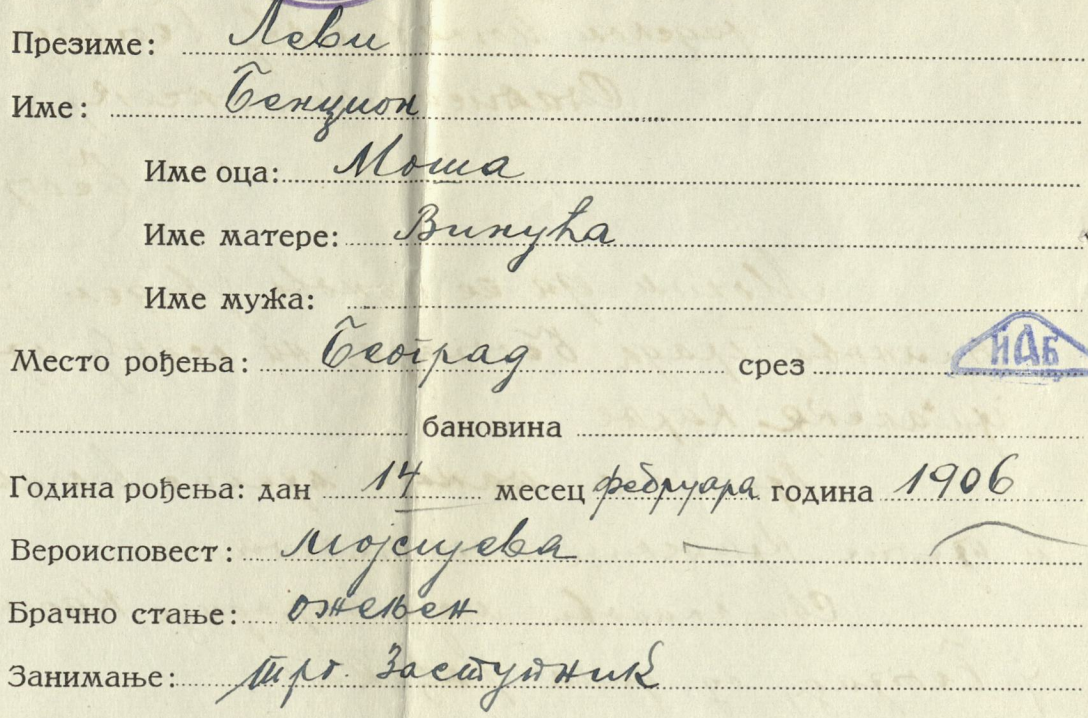 Презиме: Леви
Име: Бенцион
Име оца: Моша
Име матере: Винућа
Име мужа:
Место рођења: Београд срез
ИАБ
бановина
Година рођења: дан 14 месец фебруара година 1906
Вероисповест: Мојсијева
Брачно стање: ожењен
Занимање: трг. Заступник